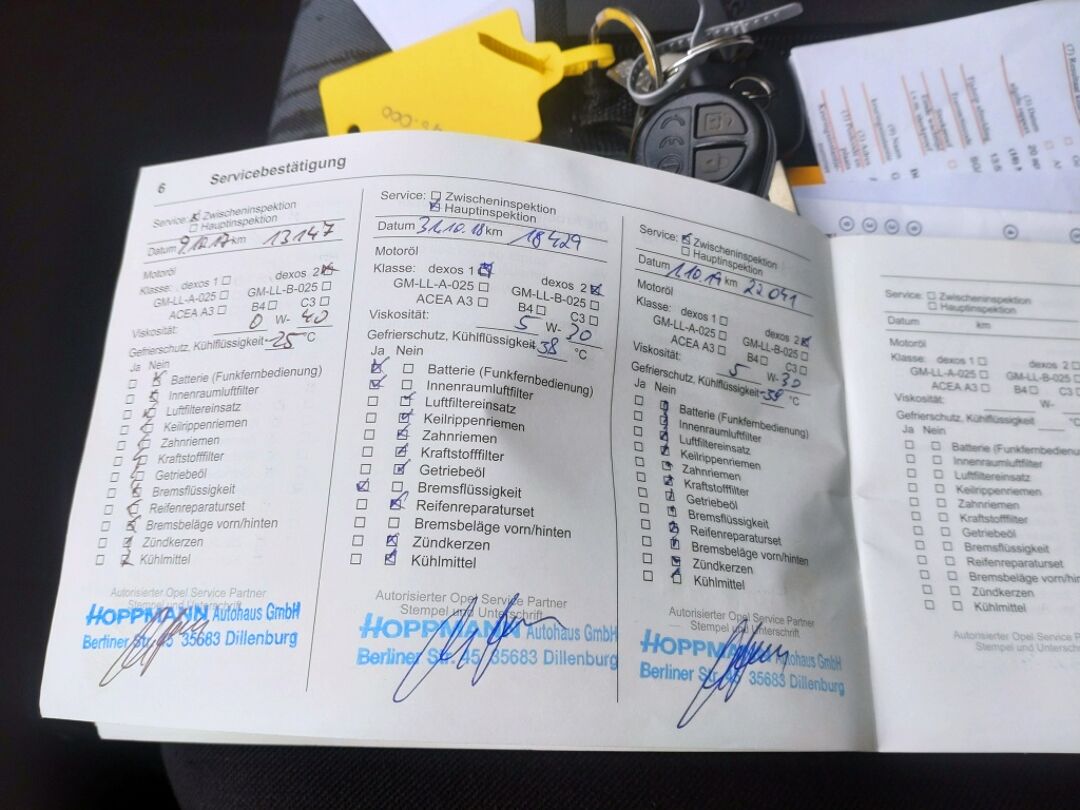 6 Servicebestätigung
Service: Zwischeninspektion
Hauptinspektion
Datum 9.10.17 km 13147
Motoröl
Klasse: dexos 1 dexos 2
GM-LL-A-025 GM-LL-B-025
ACEA A3 B4 C3
Viskosität: 0 W- 40
Gefrierschutz, Kühlflüssigkeit -25 °C
Ja Nein
Batterie (Funkfernbedienung)
Innenraumluftfilter
Luftfiltereinsatz
Keilrippenriemen
Zahnriemen
Kraftstofffilter
Getriebeöl
Bremsflüssigkeit
Reifenreparaturset
Bremsbeläge vorn/hinten
Zündkerzen
Kühlmittel
Autorisierter Opel Service Partner
Stempel und Unterschrift
HOPPMANN Autohaus GmbH
Berliner Str. 45 35683 Dillenburg
Service: Zwischeninspektion
Hauptinspektion
Datum 31.10.18 km 18429
Motoröl
Klasse: dexos 1 dexos 2
GM-LL-A-025 GM-LL-B-025
ACEA A3 B4 C3
Viskosität: 5 W- 30
Gefrierschutz, Kühlflüssigkeit -38 °C
Ja Nein
Batterie (Funkfernbedienung)
Innenraumluftfilter
Luftfiltereinsatz
Keilrippenriemen
Zahnriemen
Kraftstofffilter
Getriebeöl
Bremsflüssigkeit
Reifenreparaturset
Bremsbeläge vorn/hinten
Zündkerzen
Kühlmittel
Autorisierter Opel Service Partner
Stempel und Unterschrift
HOPPMANN Autohaus GmbH
Berliner Str. 45, 35683 Dillenburg
Service: Zwischeninspektion
Hauptinspektion
Datum 1.10.19 km 22041
Motoröl
Klasse: dexos 1 dexos 2
GM-LL-A-025 GM-LL-B-025
ACEA A3 B4 C3
Viskosität: 5 W- 30
Gefrierschutz, Kühlflüssigkeit -38 °C
Ja Nein
Batterie (Funkfernbedienung)
Innenraumluftfilter
Luftfiltereinsatz
Keilrippenriemen
Zahnriemen
Kraftstofffilter
Getriebeöl
Bremsflüssigkeit
Reifenreparaturset
Bremsbeläge vorn/hinten
Zündkerzen
Kühlmittel
Autorisierter Opel Service Partner
Stempel und Unterschrift
HOPPMANN Autohaus GmbH
Berliner Str. 45 35683 Dillenburg
Service: Zwischeninspektion
Hauptinspektion
Datum km
Motoröl
Klasse: dexos 1 dexos 2
GM-LL-A-025 GM-LL-B-025
ACEA A3 B4 C3
Viskosität: W-
Gefrierschutz, Kühlflüssigkeit °C
Ja Nein
Batterie (Funkfernbedienu
Innenraumluftfilter
Luftfiltereinsatz
Keilrippenriemen
Zahnriemen
Kraftstofffilter
Getriebeöl
Bremsflüssigkeit
Reifenreparaturset
Bremsbeläge vorn/hin
Zündkerzen
Kühlmittel
Autorisierter Opel Service Pa
Stempel und Untersch